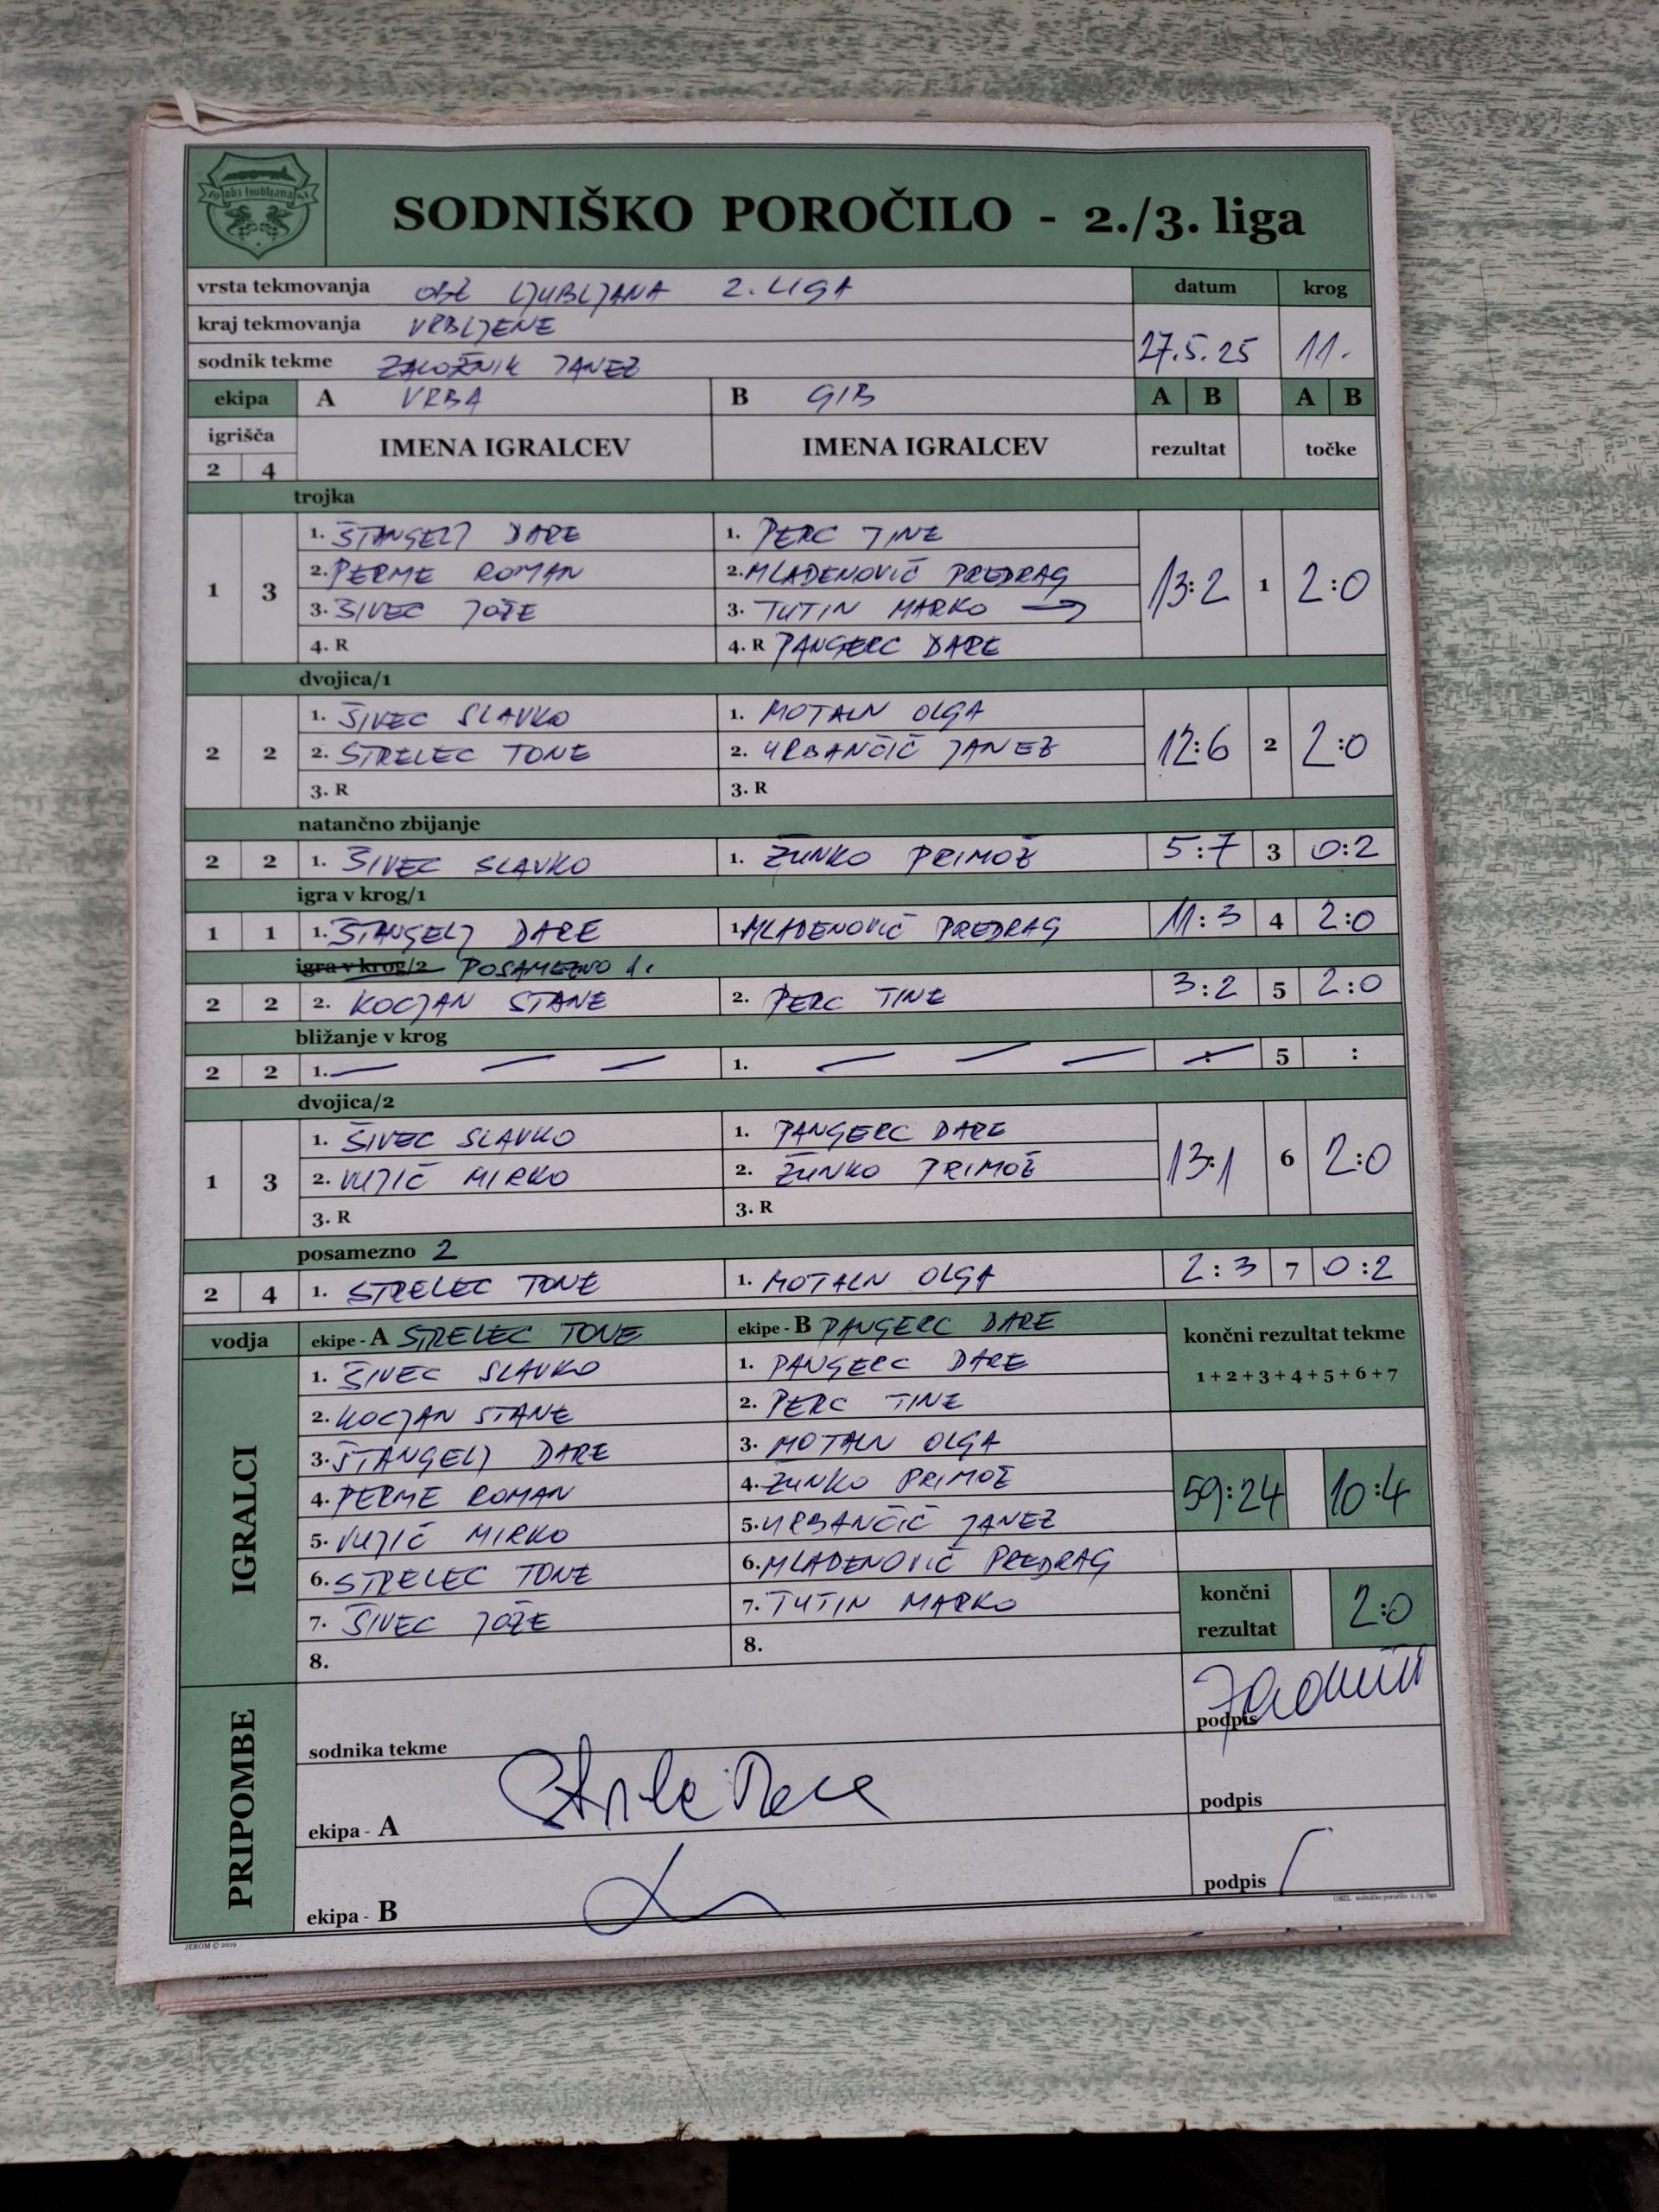 obz ljubljana
SODNIŠKO POROČILO - 2./3. liga
vrsta tekmovanja OBZ LJUBLJANA 2. LIGA datum krog
kraj tekmovanja VRBLJENE
sodnik tekme ZALOŽNIK JANEZ 27.5.25 11.
ekipa A VRBA B GIB A B A B
igrišča IMENA IGRALCEV IMENA IGRALCEV rezultat točke
2 4
trojka
1. ŠTANGELJ DARE 1. PERC TINE
1 3 2. PERME ROMAN 2. MLADENOVIČ PREDRAG 13:2 1 2:0
3. ŠIVEC JOŽE 3. TUTIN MARKO →
4. R 4. R PANGERC DARE
dvojica/1
1. ŠIVEC SLAVKO 1. MOTALN OLGA
2 2 2. STRELEC TONE 2. URBANČIČ JANEZ 12:6 2 2:0
3. R 3. R
natančno zbijanje
2 2 1. ŠIVEC SLAVKO 1. ŽUNKO PRIMOŽ 5:7 3 0:2
igra v krog/1
1 1 1. ŠTANGELJ DARE 1. MLADENOVIČ PREDRAG 11:3 4 2:0
igra v krog/2 POSAMEZNO 1.
2 2 2. KOCJAN STANE 2. PERC TINE 3:2 5 2:0
bližanje v krog
2 2 1. — — — 1. — — — : 5 :
dvojica/2
1. ŠIVEC SLAVKO 1. PANGERC DARE
1 3 2. VUJIČ MIRKO 2. ŽUNKO PRIMOŽ 13:1 6 2:0
3. R 3. R
posamezno 2
2 4 1. STRELEC TONE 1. MOTALN OLGA 2:3 7 0:2
vodja ekipe - A STRELEC TONE ekipe - B PANGERC DARE končni rezultat tekme
1+2+3+4+5+6+7
IGRALCI
1. ŠIVEC SLAVKO 1. PANGERC DARE
2. KOCJAN STANE 2. PERC TINE
3. ŠTANGELJ DARE 3. MOTALN OLGA
4. PERME ROMAN 4. ŽUNKO PRIMOŽ 59:24 10:4
5. VUJIČ MIRKO 5. URBANČIČ JANEZ
6. STRELEC TONE 6. MLADENOVIČ PREDRAG
7. ŠIVEC JOŽE 7. TUTIN MARKO končni rezultat 2:0
8. 8.
PRIPOMBE
sodnika tekme podpis
ekipa - A podpis
ekipa - B podpis
JEROM © 2019 OBZL sodniško poročilo 2./3. liga